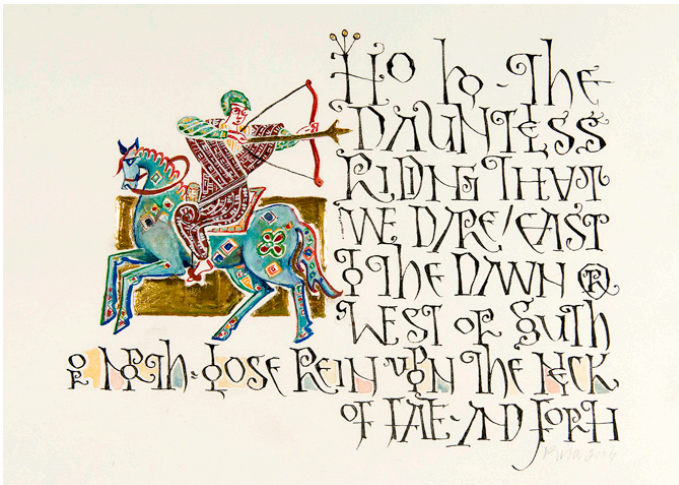 HO lo - The
DAUNTLESS
RIDING THAT
WE DARE / EAST
TO THE DAWN OR
WEST OR SOUTH
OR NORTH · LOOSE REIN UPON THE NECK
OF FATE - AND FORTH
2016